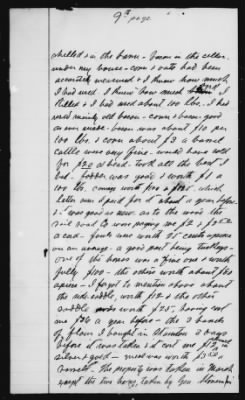 9th page
shelled & in the barn – bacon in the cellar
under my house – corn & oats had been
accurately measured & I knew how much
I had used. I knew how much I
killed & I had used about 100 lbs. I had
used mainly old bacon – corn & bacon good
an average – bacon was about $10 per
100 lbs. & corn about $3 a barrel
cattle was very fine – would have sold
for $20 a head – took all the beef I
had. fodder was good & worth $1 a
100 lbs. – which
I paid for it about a year before
& was good as new – as to the wood the
rail road Co were paying me $2
a cord – fowls was worth 25 cents apiece
on an average – a good part being turkeys –
one of the horses was a fine one & worth
fully $100 – the others worth about $80
apiece – I forgot to mention above about
the side saddle, worth $12 & the other
saddle worth $25, having cost
me $26 a year before – the 3 barrels
of flour I bought in Staunton 3 days
before it was taken & it cost me $12 in
silver & gold – was worth $3
barrel – The property was taken in March
except the two horses, taken by Gen